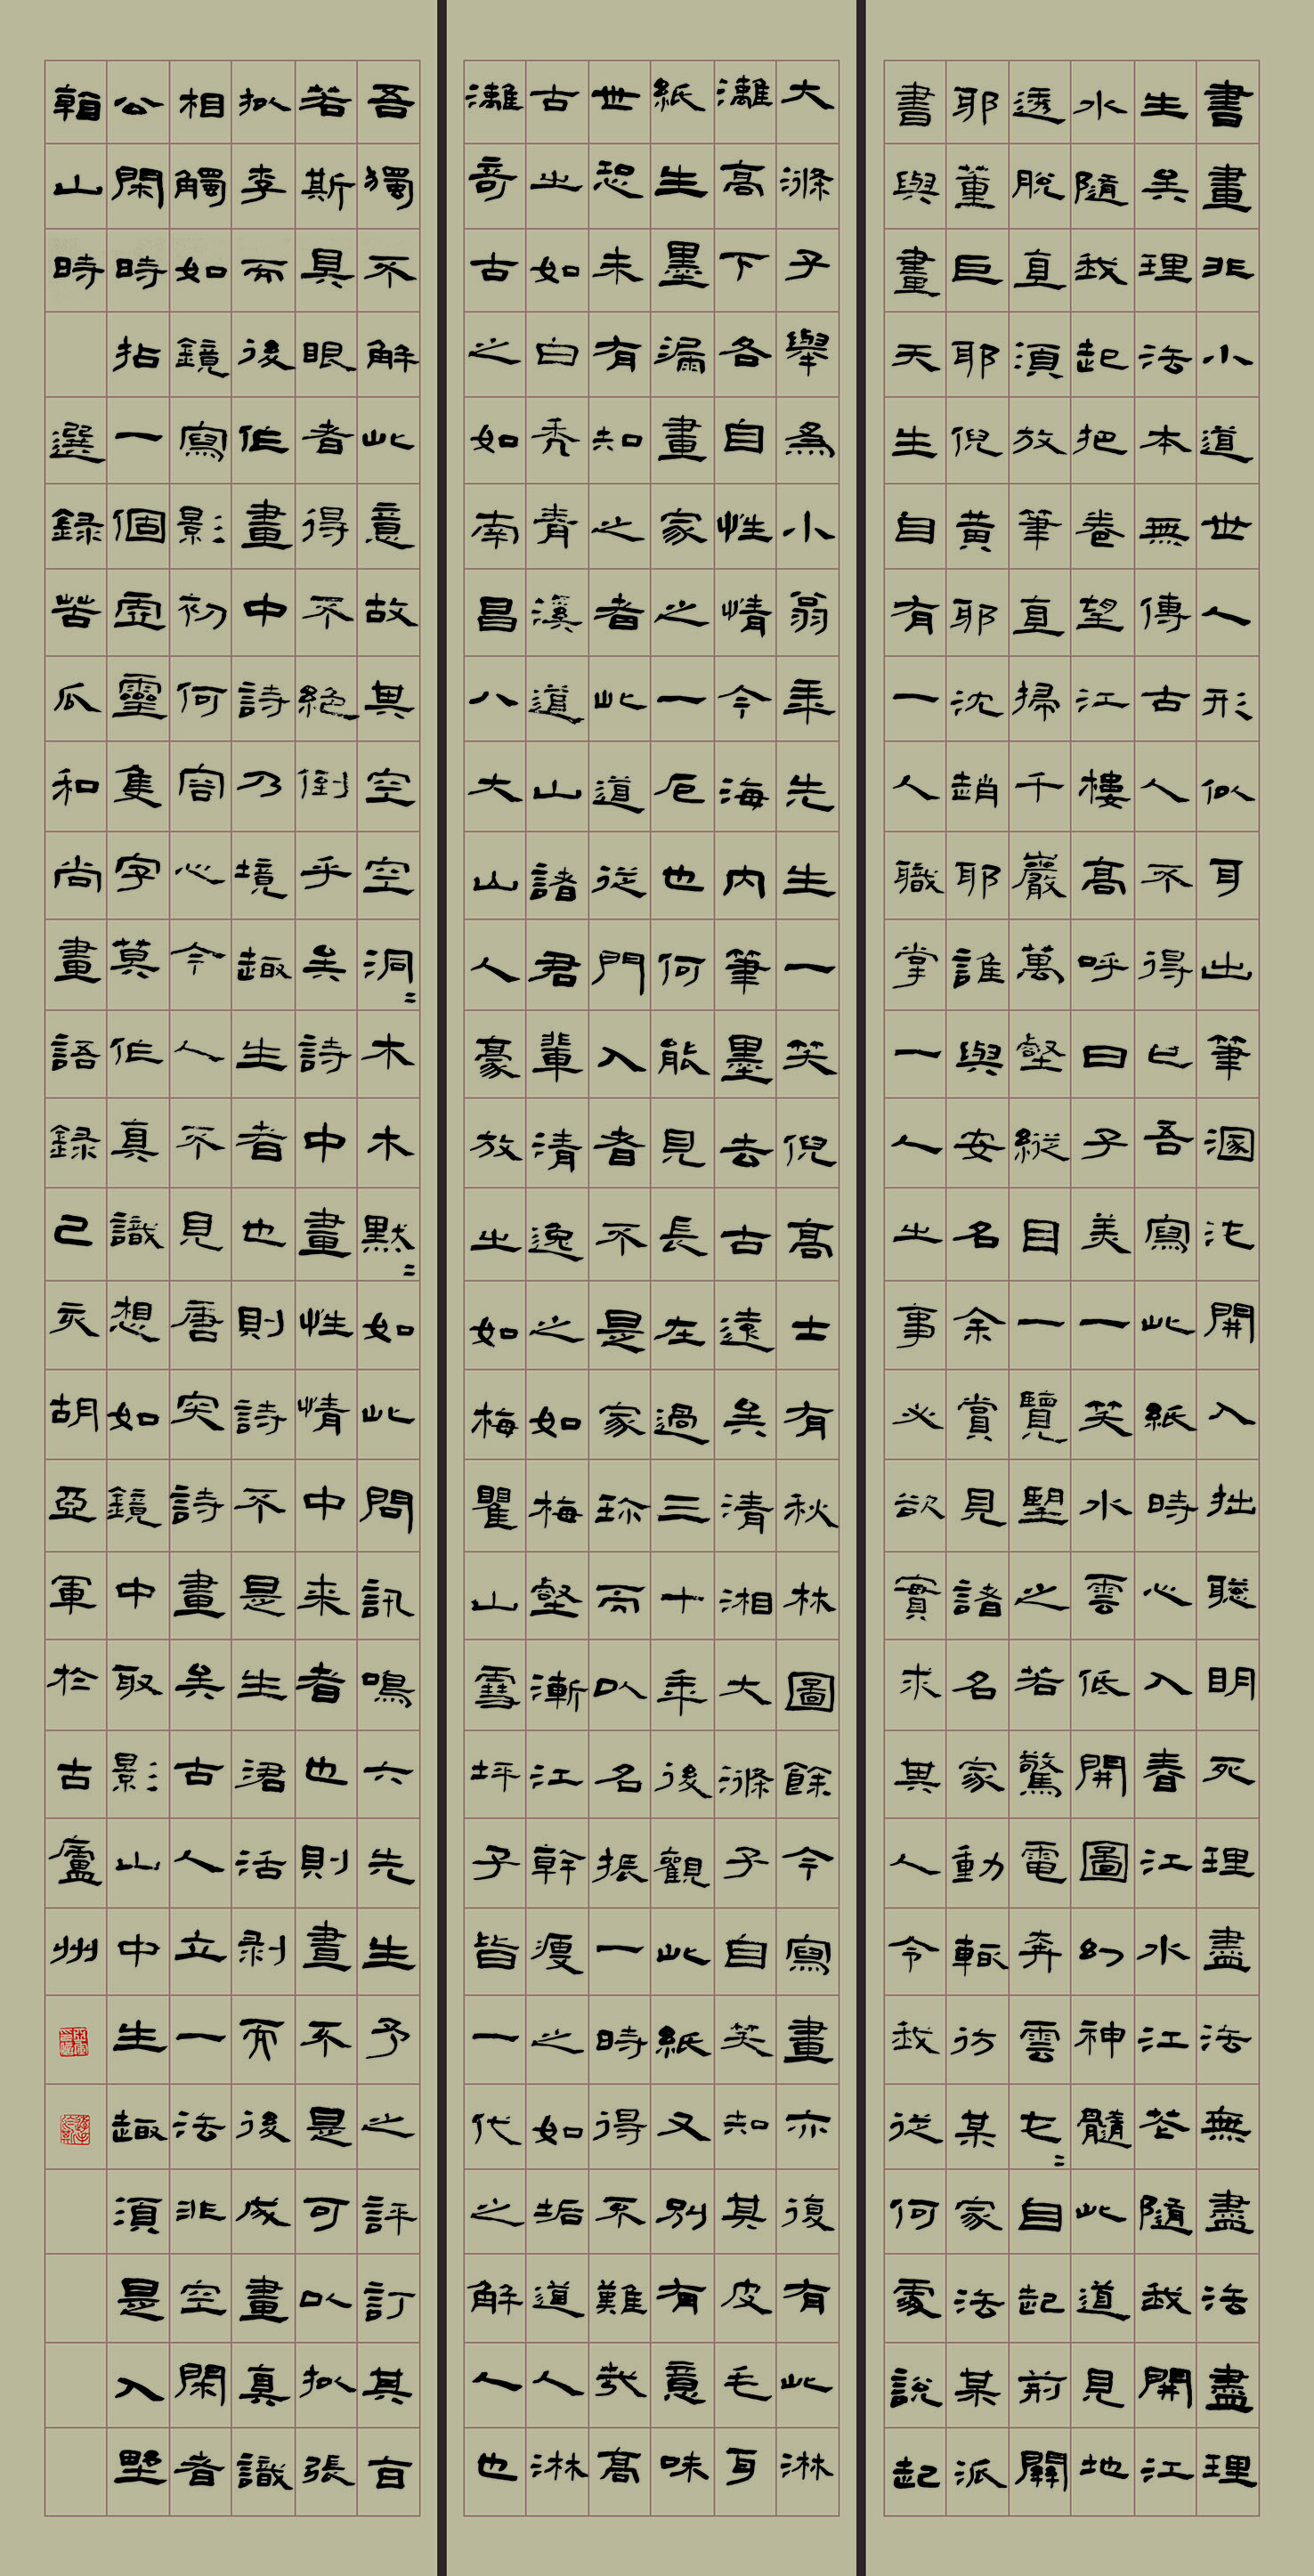 書畫非小道世人形似耳出筆溷沌開入拙聰明死理盡法無盡法盡理
生矣理法本無傳古人不得已吾寫此紙時心入春江水江花隨我開江
水隨我起把卷望江樓高呼曰子美一笑水雲低開圖幻神髓此道見地
透脫直須放筆直掃千巖萬壑縱目一覽望之若驚電奔雲屯=自起荊關
耶董巨耶倪黃耶沈趙耶誰與安名余賞見諸名家動輒仿某家法某派
書與畫天生自有一人職掌一人之事必欲實求其人令我從何處說起
大滌子舉為小翁年先生一笑倪高士有秋林圖餘今寫畫亦復有此淋
灕高下各自性情今海內筆墨去古遠矣清湘大滌子自笑知其皮毛耳
紙生墨漏畫家之一厄也何能見長在過三十年後觀此紙又別有意味
世恐未有知之者此道從門入者不是家珍而以名振一時得不難哉高
古之如白禿青溪道山諸君輩清逸之如梅壑漸江幹瘦之如垢道人淋
灕奇古之如南昌八大山人豪放之如梅瞿山雪坪子皆一代之解人也
吾獨不解此意故其空空洞=木木默=如此問訊鳴六先生予之評訂其百
若斯具眼者得不絕倒乎矣詩中畫性情中來者也則畫不是可以擬張
擬李而後作畫中詩乃境趣生者也則詩不是生涒活剥而後成畫真識
相觸如鏡寫影初何容心今人不見唐突詩畫矣古人立一法非空閑者
公閑時拈一個虛靈隻字莫作真識想如鏡中取影山中生趣須是入野
翰山時 選錄苦瓜和尚畫語錄己亥胡亞軍於古廬州